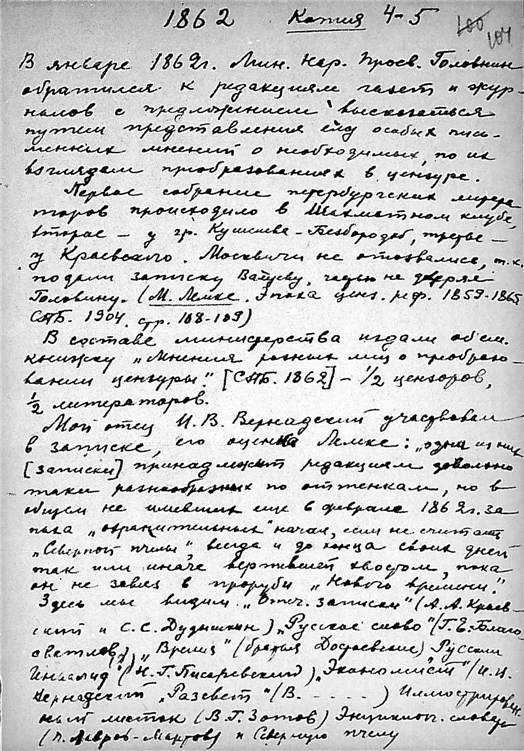 1862 Копия 4-5
101
В январе 1862г. Мин. Нар. Просв. Головнин
обратился к редакциям газет и жур-
налов с предложением высказаться
путем представления ему особых пись-
менных мнений о необходимых, по их
взглядам преобразованиях в цензуре.
Первое собрание петербургских литера
торов происходило в Шахматном клубе,
второе – у гр. Кушелева-Безбородко, третье –
у Краевского. Москвичи не отозвались, т.к.
подали записку Валуеву, не доверяя
Головнину. (М. Лемке. Эпоха ценз. реф. 1859-1865
СПБ. 1904. стр. 108-109)
В составе министерства издали об'ем.
книжку „Мнения разных лиц о преобразо-
вании цензуры". [СПБ. 1862] – ½ цензоров,
½ литераторов.
Мой отец И. В. Вернадский участвовал
в записке, его оценка Лемке: „одна из них
[записки] принадлежит редакциям довольно
таки разнообразных по оттенкам, но в
общем не имевших еще в феврале 1862г. за
пала „охранительных" начал, если не считать
„Северной пчелы", всегда и до конца своих дней
так или иначе вертевшей хвостом, пока
он не завяз в проруби „Нового времени".
Здесь мы видим „Отч. записки" (А. А. Краев-
ский и С. С. Дудышкин) „Русское слово" (Г. Е. Благо-
светлов) „Время" (братья Достоевские) Русский
Инвалид (Н. Г. Писаревский) „Экономист" (И. В.
Вернадский „Разсвет" (В. - - - - -) Иллюстрирован-
ный листок (В. Р. Зотов) Энциклоп. словарь
(П. Лавров-) и Северную пчелу